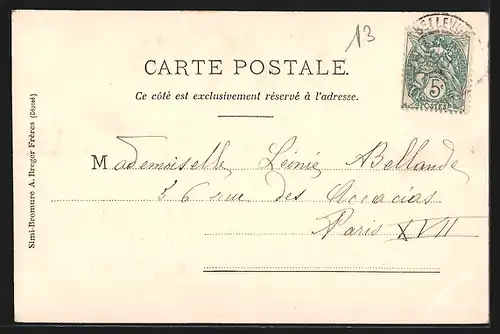 13
BELLEVUE
CARTE POSTALE.
5c
POSTES
Ce côté est exclusivement réservé à l'adresse.
Mademoiselle Léinie Bellande
36 rue des Accacias
Paris XVII
Simi-Bromure A. Breger Frères (Déposé)